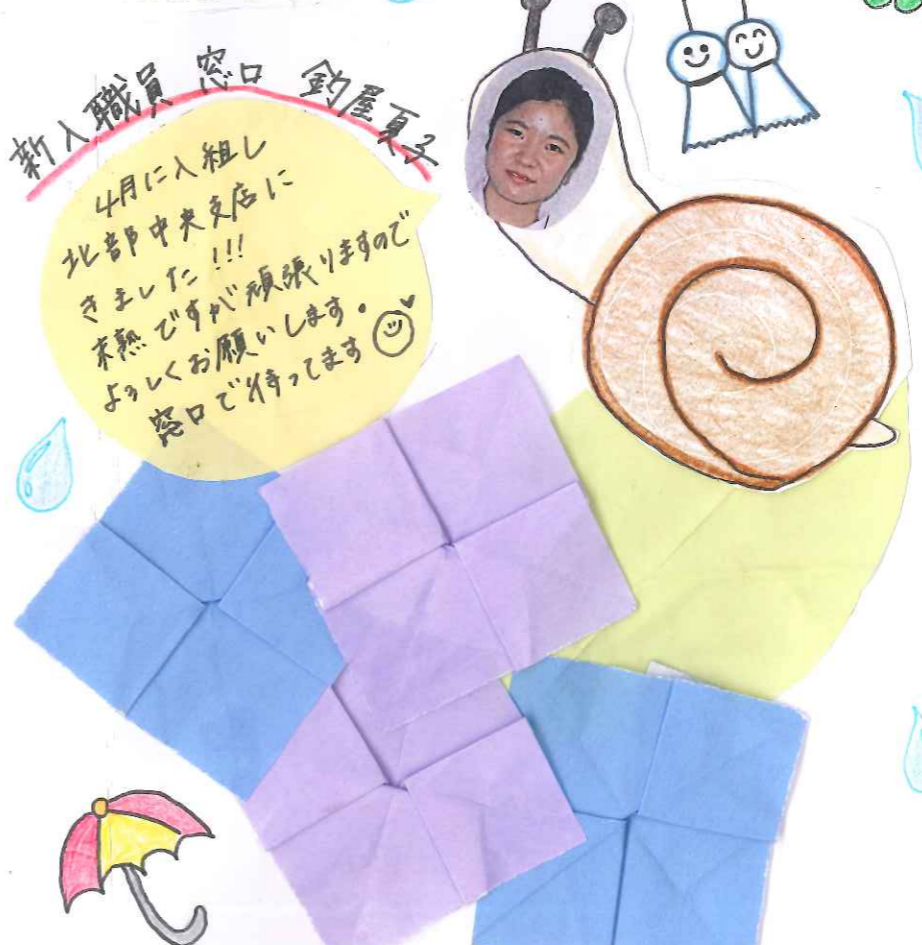 新入職員 窓口 釣屋夏子
4月に入組し
北部中央支店に
きました!!!
未熟ですが頑張りますので
よろしくお願いします。
窓口で待ってます